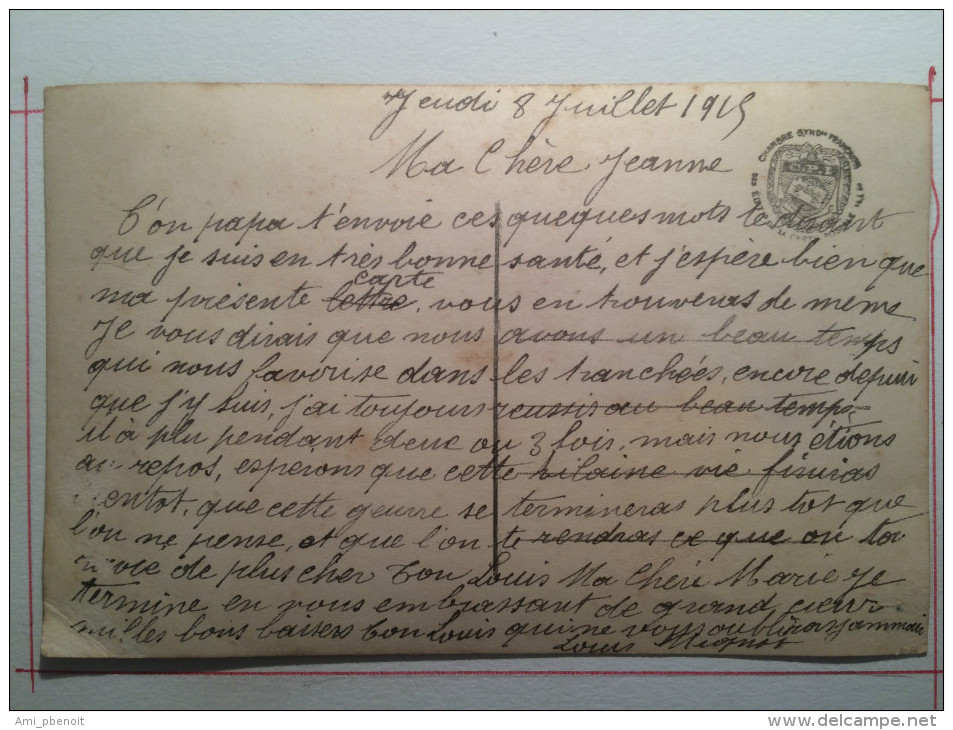 Jeudi 8 Juillet 1915
Ma Chère Jeanne
CHAMBRE SYND
T'on papa t'envoie ces queques mots te disant
que je suis en très bonne santé, et j'espère bien que
carte
ma présente lettre, vous en trouveras de meme
Je vous dirais que nous avons un beau temps
qui nous favorise dans les tranchées, encore depuis
que j'y suis, j'ai toujours reussis au beau temps
il à plu pendant deux ou 3 fois, mais nous étions
au repos, espérons que cette vilaine vie finiras
entot, que cette geurre se termineras plus tot que
l'on ne pense, et que l'on te rendras ce que on ta
de plus cher Ton Louis Ma Chère Marie Je
termine en vous embrassant de grand cœur
milles bons baisers Ton Louis qui ne vous oublieras jammais
Louis
Ami_pbenoit
www.delcampe.net